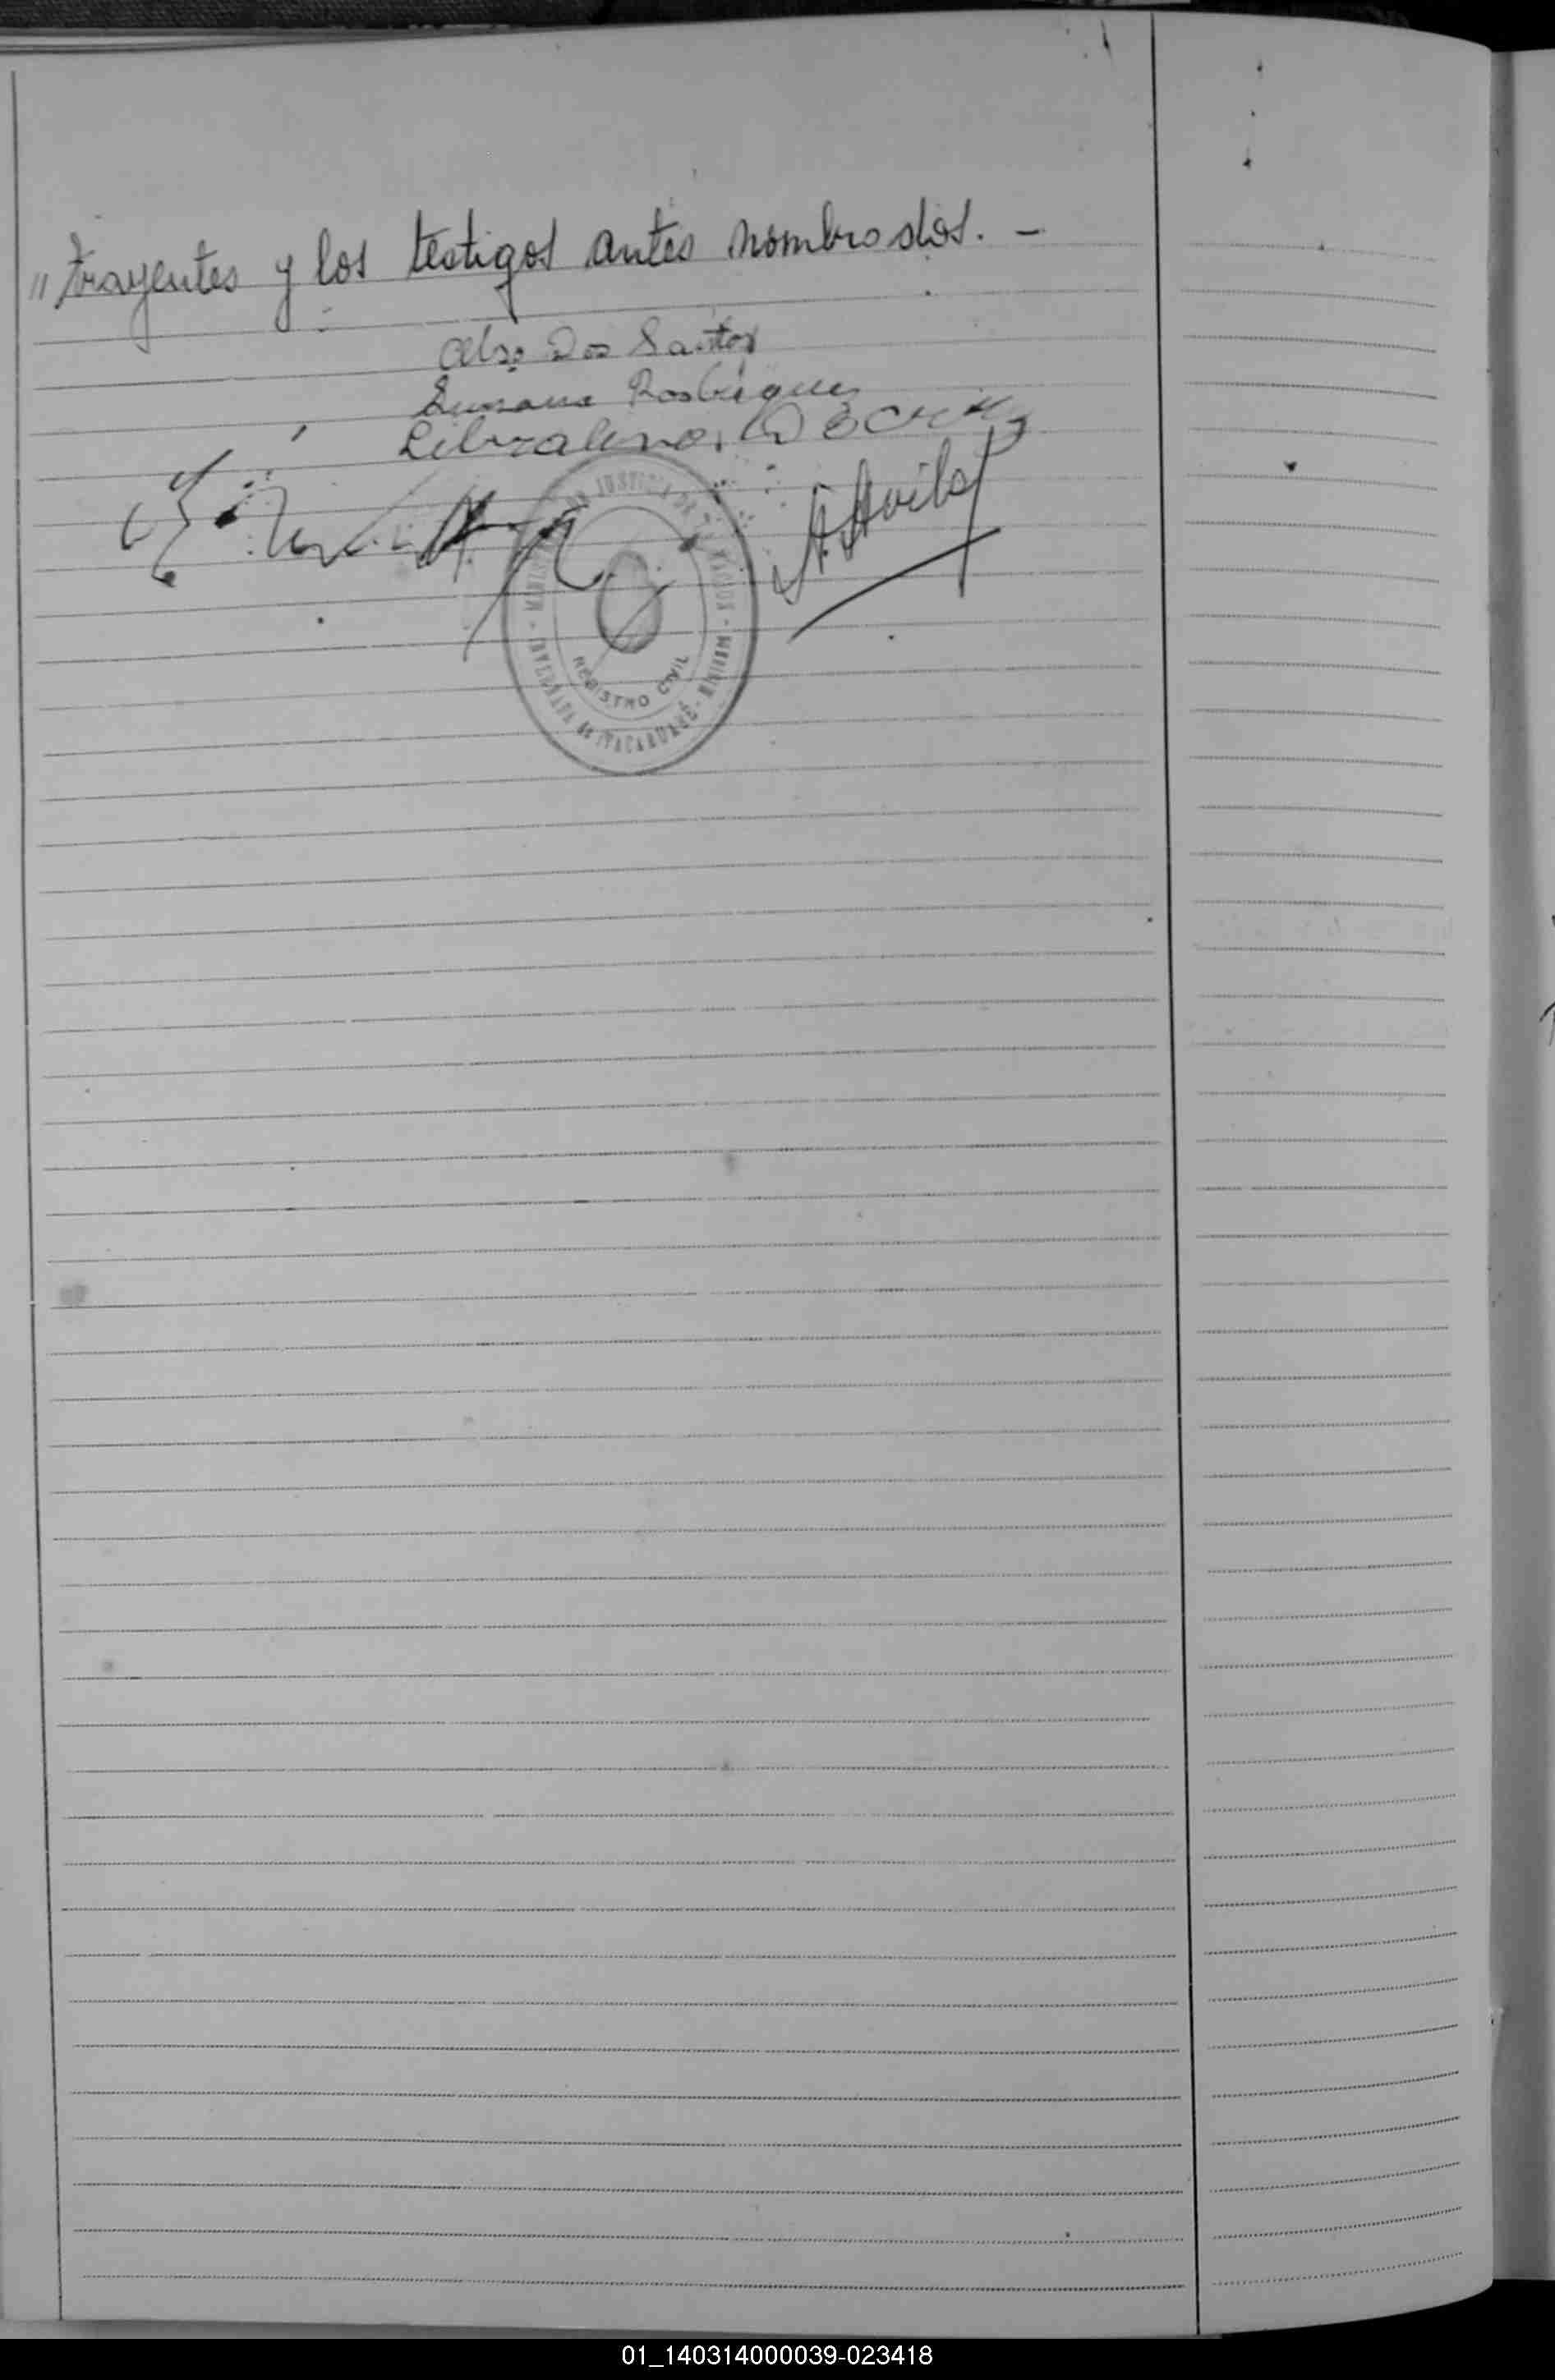 "trayentes y los testigos antes nombrados. -
Celso Dos Santos
Susana Rodrigues
Libralino. D
A. Avila
MINISTERIO DE JUSTICIA
REGISTRO CIVIL
INVERNADA DE ITACARUARÉ - MISIONES
01_140314000039-023418